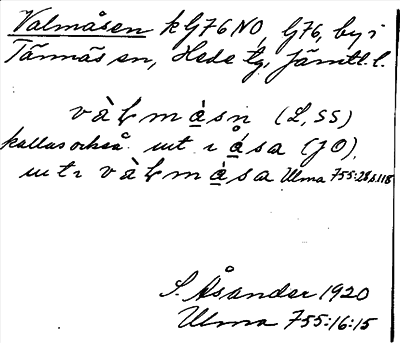 Valmåsen k G76 NO, G76, by i
Tännäs sn, Hede tg, Jämtl. l.
vàƚmä̀sn (L, SS)
kallas också ut ı ǻsa (JO),
ut ı vàƚmä̀sa Ulma 755:28 s. 118
S. Åsander 1920
Ulma 755:16:15